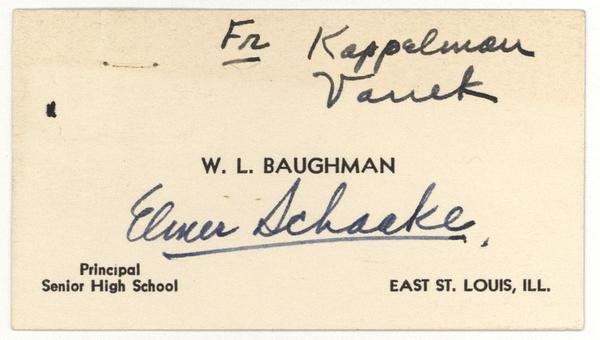 Fr Kappelman
Vanek
W. L. BAUGHMAN
Elmer Schaake.
Principal
Senior High School
EAST ST. LOUIS, ILL.